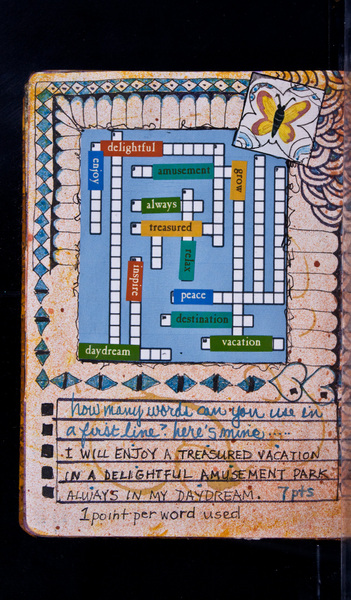 delightful
enjoy
amusement
grow
always
treasured
relax
inspire
peace
destination
vacation
daydream
how many words can you use in
a first line? here's mine.....
I WILL ENJOY A TREASURED VACATION
IN A DELIGHTFUL AMUSEMENT PARK
ALWAYS IN MY DAYDREAM. 7pts
1 point per word used